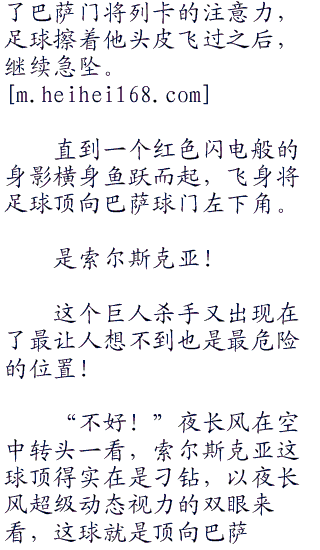 了巴萨门将列卡的注意力，
足球擦着他头皮飞过之后，
继续急坠。
[m.heihei168.com]
直到一个红色闪电般的
身影横身鱼跃而起，飞身将
足球顶向巴萨球门左下角。
是索尔斯克亚！
这个巨人杀手又出现在
了最让人想不到也是最危险
的位置！
“不好！”夜长风在空
中转头一看，索尔斯克亚这
球顶得实在是刁钻，以夜长
风超级动态视力的双眼来
看，这球就是顶向巴萨